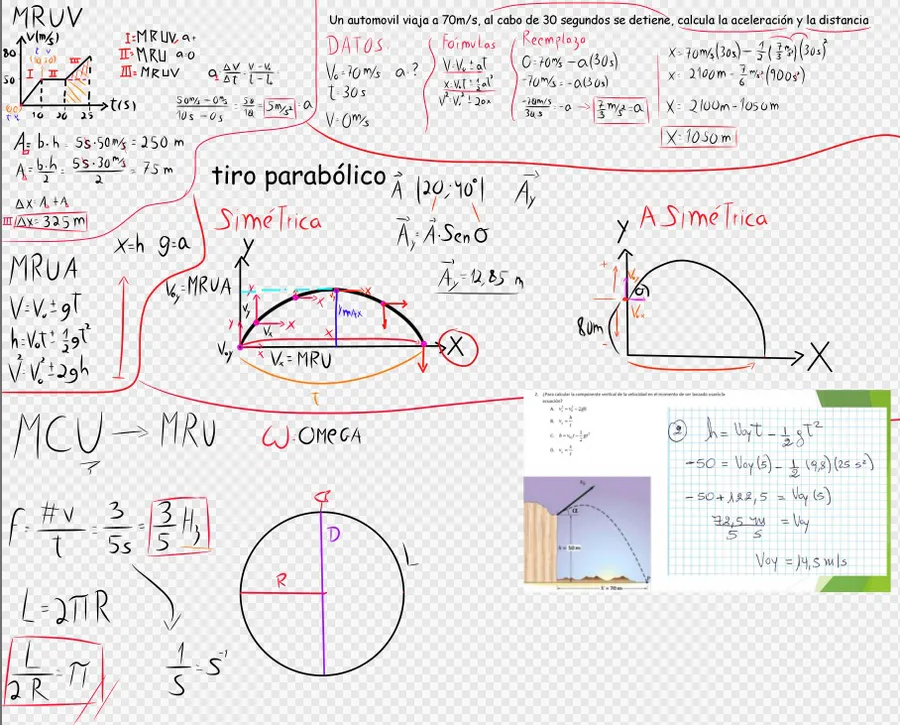 MRUV
V(m/s)
80
50
I II III
10 20 25
t(s)
I=MRUV, a+
II=MRU a=0
III=MRUV
a=ΔV/Δt = V-V₀/t-t₀
50m/s-0m/s/10s-0s = 50/10 = 5m/s² = a
A=b·h = 5s·50m/s = 250 m
A=b·h/2 = 5s·30m/s/2 = 75m
Δx=A₁+A₂
III Δx=325m
Un automovil viaja a 70m/s, al cabo de 30 segundos se detiene, calcula la aceleración y la distancia
DATOS
V₀=70m/s a=?
t 30s
V=0m/s
Fórmulas
V=V₀±aT
x=V₀T±½aT²
V²=V₀²±2ax
Reemplazo
0=70m/s-a(30s)
-70m/s=-a(30s)
-70m/s/-30s=a → 7/3 m/s²=a
X=70m/s(30s)-½(7/3 m/s²)(30s)²
X=2100m-7/6 m/s²(900s²)
X=2100m-1050m
X=1050m
X=h g=a
MRUA
V=V₀±gT
h=V₀T±½gT²
V²=V₀²±2gh
tiro parabólico
A (20;40°) Ay
Ay=A·Senθ
Ay=12,85 m
Simétrica
Y
V₀y=MRUA
y
Vy
Vx
x
ymax
V₀y
Vx=MRU
X
T
ASimétrica
Y
+
V₀y
θ
V₀x
80m
-
X
MCU → MRU
ω=OMEGA
f=#v/t = 3/5s = 3/5 Hz
L=2πR
L/2R=π
1/s=s⁻¹
D
R
L
2. ¿Para calcular la componente vertical de la velocidad en el momento de ser lanzado usaría la
ecuación?
A.
B.
C.
D.
α
h = 50 m
X = 70 m
② h=V₀yT-½gT²
-50=V₀y(5)-½(9,8)(25s²)
-50+122,5=V₀y(5)
72,5 m/5 s =V₀y
V₀y=14,5m/s